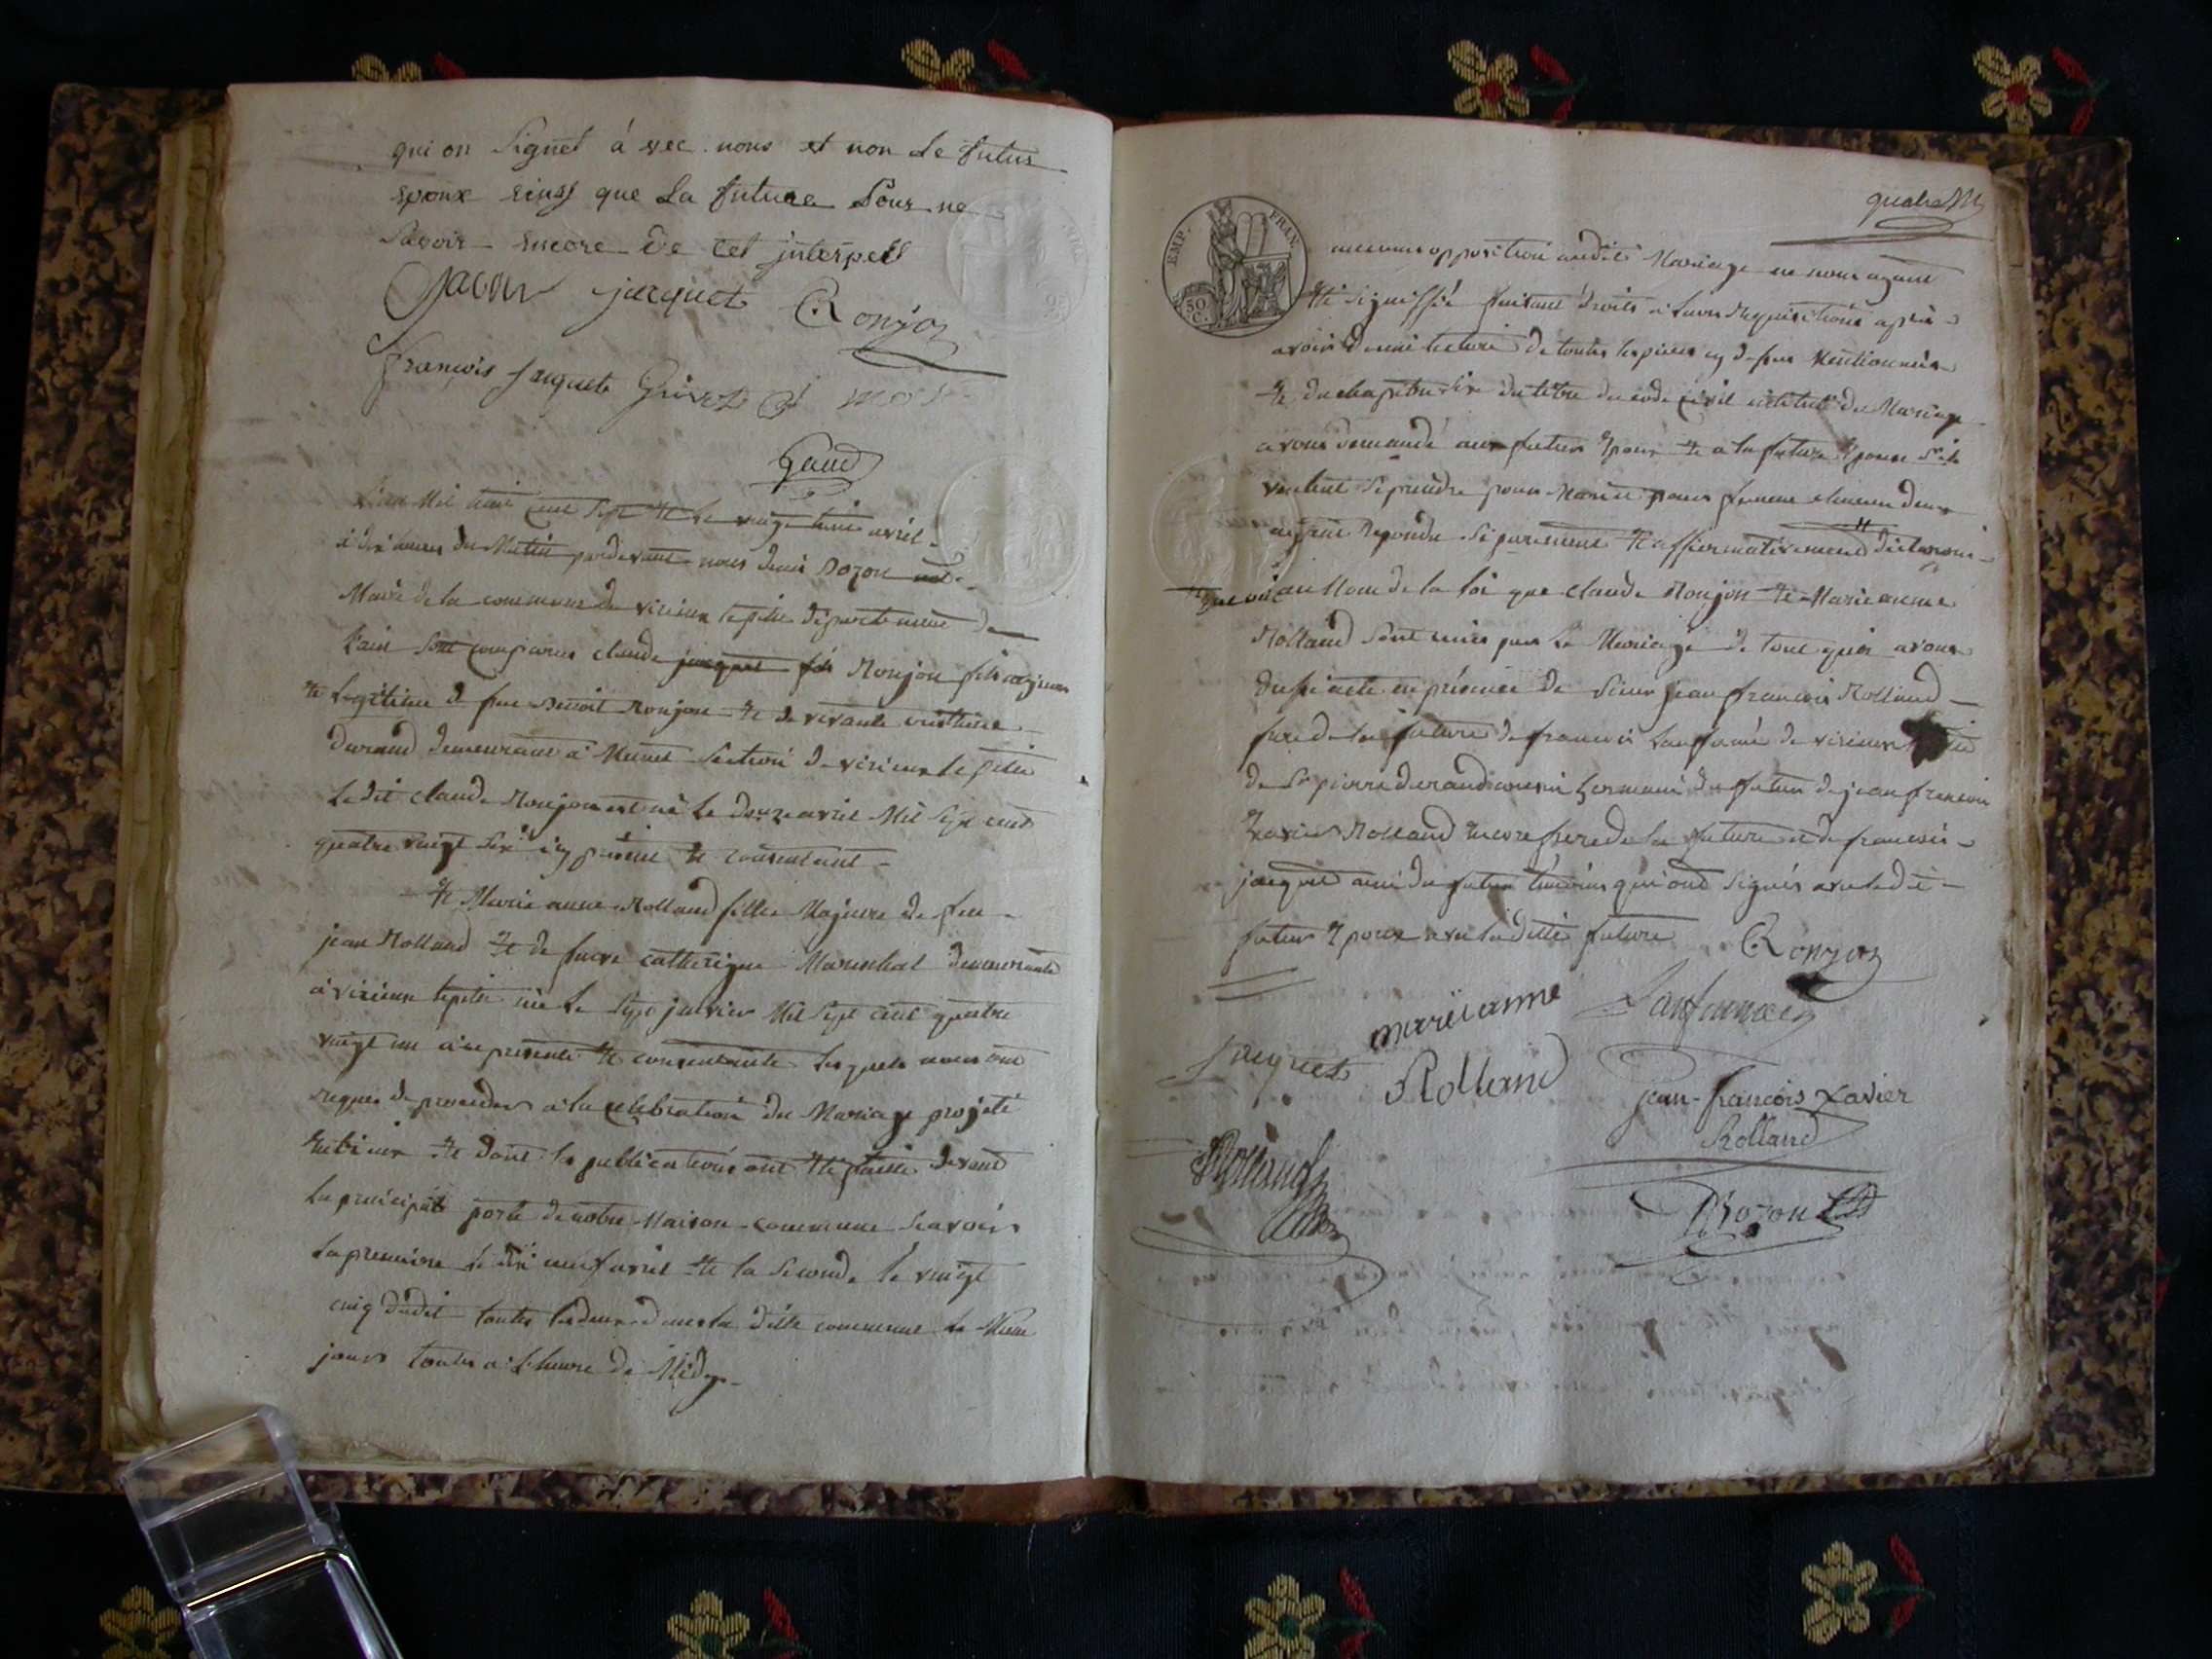 qui on Signet à vec nous et non le futur
epoux einsy que La future Pour ne
Savoir encore De cet jnterpell
jacquet Ronjon
françois jacquet
L'an Mil huit Cent Sept et le vingt avril
à dix heures du Matin pardevant nous Bozon
Maire de la commune de virieux le petit département de
l'ain Sont comparus claude jacques fils Ronjon fils majeur
et Legitime de feu Benoit Ronjon et de vivante
Durand demeurant à Munet Section de virieux le petit
Le dit claude Ronjon est né le douze avril Mil Sept cent
quatre vingt Six icy présent et consentant
et Marie anne Rolland fille Majeure de feu
jean Rolland et de fuve catherigne Mareschal demeurante
à virieux le petit née le Sept janvier Mil Sept cent quatre
vingt un aice presente et consentante Lesquels nous ont
requis de proceder à la celebration du Mariage projeté
entr'eux et dont les publications ont été faittes devant
la principale porte de notre Maison commune Scavoir
la premiere le dix neuf avril et la Seconde le vingt
cinq dudit toutes les deux dans la ditte commune le Meme
jours toutes a l'heure de Midy
EMP. FRAN.
50 C.
quatre
aucunes opposition audit Mariage ne nous ayant
été Signiffié faisant droits à leurs Requisitions après
avoir donné lecture de toutes les pièces cy dessus Mentionnées
et du chapitre Six du titre du code Civil intitulé du Mariage
avons demandé aux futur Epoux et a la future Epouse S'ils
veulent Se prendre pour Mari et pour femme chacun deux
ayant Repondu Séparement et affirmativement declarons
au Nom de la loi que claude Ronjon et Marie anne
Rolland Sont unis par le Mariage de tout quoi avons
dressé acte en présence de Sieur jean françois Rolland
frere de la future de francois Lanfrancé de virieux
de Sr pierre durand cousin germain du futur de jean francois
Xavier Rolland encore frere de la future et de francois
jacquet ami du futur témoins qui ont Signés avec le dit
futur Epoux avec la ditte future Ronjon
marie anne
Rolland
Jacquet
jean-françois Xavier
Rolland
Bozon